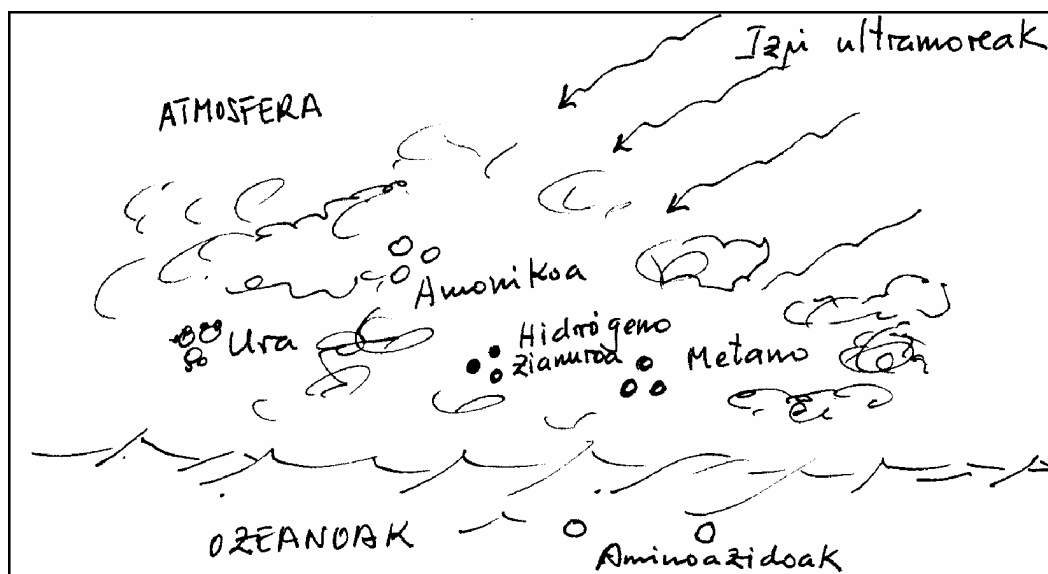 Izpi ultramoreak
ATMOSFERA
Amonikoa
Ura
Hidrógeno
zianuroa
Metano
OZEANOAK
Aminoazidoak